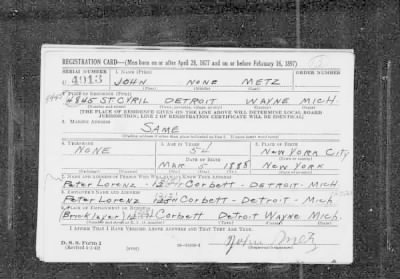 REGISTRATION CARD—(Men born on or after April 28, 1877 and on or before February 16, 1897)
SERIAL NUMBER 1. NAME (Print) ORDER NUMBER
U 4913 JOHN NONE METZ
(First) (Middle) (Last)
2. PLACE OF RESIDENCE (Print)
ST CYRIL DETROIT WAYNE MICH.
(THE PLACE OF RESIDENCE GIVEN ON THE LINE ABOVE WILL DETERMINE LOCAL BOARD
JURISDICTION; LINE 2 OF REGISTRATION CERTIFICATE WILL BE IDENTICAL)
3. MAILING ADDRESS
SAME
4. TELEPHONE 5. AGE IN YEARS 6. PLACE OF BIRTH
NONE 54 NEW YORK CITY
DATE OF BIRTH
MAR 5 1888 NEW YORK
7. NAME AND ADDRESS OF PERSON WHO WILL ALWAYS KNOW YOUR ADDRESS
Peter Lorenz - Corbett - DETROIT - MICH
8. EMPLOYER'S NAME AND ADDRESS
Peter Lorenz Corbett - Detroit - Mich
9. PLACE OF EMPLOYMENT OR BUSINESS
Bricklayer Corbett Detroit Wayne Mich.
I AFFIRM THAT I HAVE VERIFIED ABOVE ANSWERS AND THAT THEY ARE TRUE.
D. S. S. Form 1
(Revised 4-1-42) John Metz